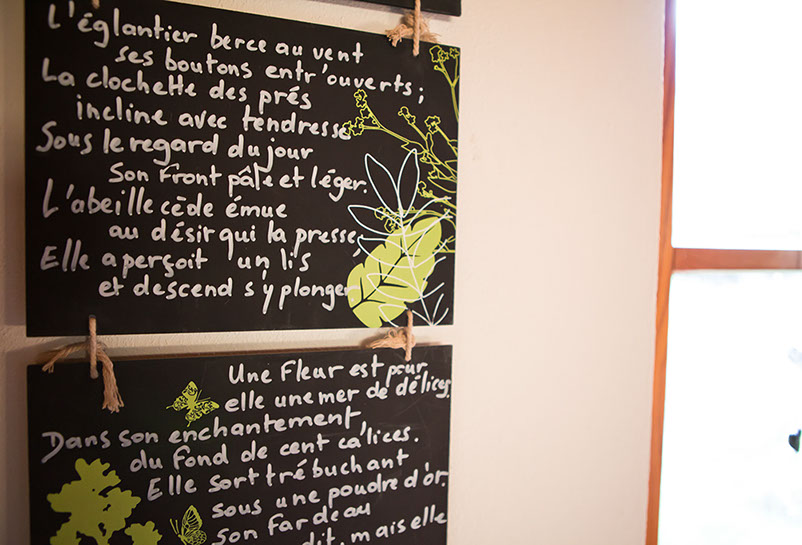 L'églantier berce au vent
ses boutons entr'ouverts ;
La clochette des prés
incline avec tendresse
Sous le regard du jour
Son front pâle et léger.
L'abeille cède émue
au désir qui la presse ;
Elle aperçoit un lis
et descend s'y plonger
Une Fleur est pour
elle une mer de délices.
Dans son enchantement,
du fond de cent calices.
Elle sort trébuchant
sous une poudre d'or.
Son fardeau
dit, mais elle